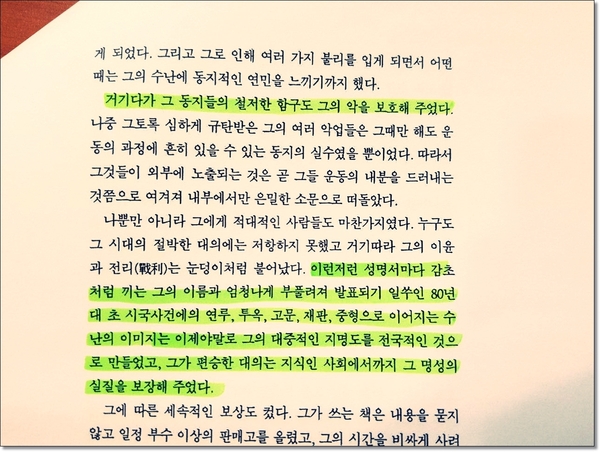 게 되었다. 그리고 그로 인해 여러 가지 불리를 입게 되면서 어떤
때는 그의 수난에 동지적인 연민을 느끼기까지 했다.
거기다가 그 동지들의 철저한 함구도 그의 악을 보호해 주었다.
나중 그토록 심하게 규탄받은 그의 여러 악업들은 그때만 해도 운
동의 과정에 흔히 있을 수 있는 동지의 실수였을 뿐이었다. 따라서
그것들이 외부에 노출되는 것은 곧 그들 운동의 내분을 드러내는
것쯤으로 여겨져 내부에서만 은밀한 소문으로 떠돌았다.
나뿐만 아니라 그에게 적대적인 사람들도 마찬가지였다. 누구도
그 시대의 절박한 대의에는 저항하지 못했고 거기따라 그의 이윤
과 전리(戰利)는 눈덩이처럼 불어났다. 이런저런 성명서마다 감초
처럼 끼는 그의 이름과 엄청나게 부풀려져 발표되기 일쑤인 80년
대 초 시국사건에의 연루, 투옥, 고문, 재판, 중형으로 이어지는 수
난의 이미지는 이제야말로 그의 대중적인 지명도를 전국적인 것으
로 만들었고, 그가 편승한 대의는 지식인 사회에서까지 그 명성의
실질을 보장해 주었다.
그에 따른 세속적인 보상도 컸다. 그가 쓰는 책은 내용을 묻지
않고 일정 부수 이상의 판매고를 올렸고, 그의 시간을 비싸게 사려